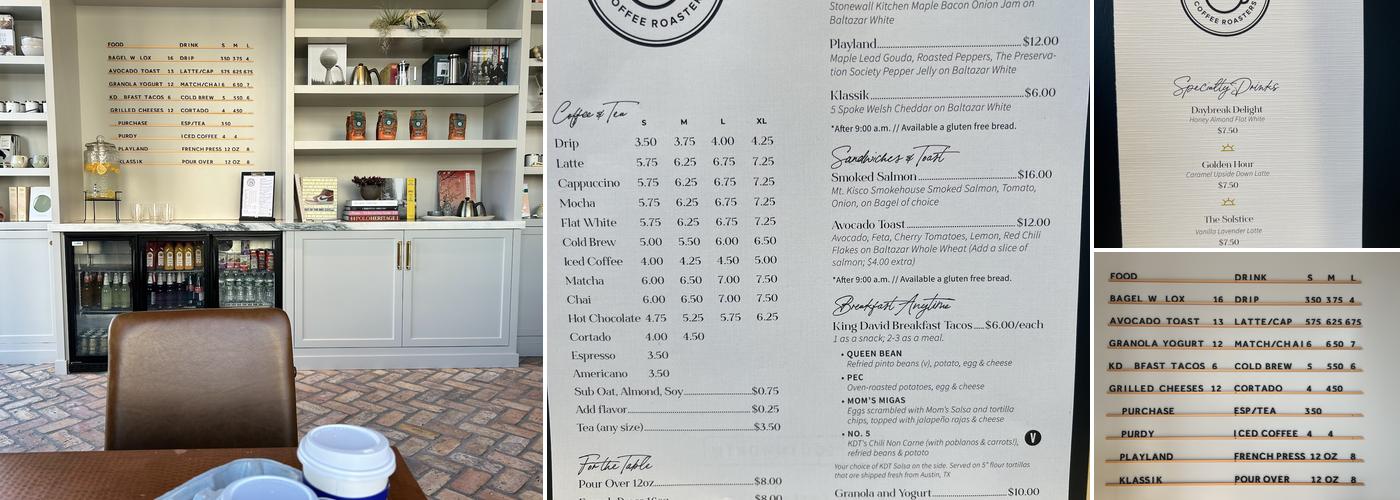 FOOD DRINK S M L
BAGEL W LOX 16 DRIP 350 375 4
AVOCADO TOAST 13 LATTE/CAP 575 625 675
GRANOLA YOGURT 12 MATCH/CHAI 6 650 7
KD BFAST TACOS 6 COLD BREW 5 550 6
GRILLED CHEESES 12 CORTADO 4 450
PURCHASE ESP/TEA 350
PURDY ICED COFFEE 4 4
PLAYLAND FRENCH PRESS 12 OZ 8
KLASSIK POUR OVER 12 OZ 8
COFFEE ROASTERS
Coffee & Tea S M L XL
Drip 3.50 3.75 4.00 4.25
Latte 5.75 6.25 6.75 7.25
Cappuccino 5.75 6.25 6.75 7.25
Mocha 5.75 6.25 6.75 7.25
Flat White 5.75 6.25 6.75 7.25
Cold Brew 5.00 5.50 6.00 6.50
Iced Coffee 4.00 4.25 4.50 5.00
Matcha 6.00 6.50 7.00 7.50
Chai 6.00 6.50 7.00 7.50
Hot Chocolate 4.75 5.25 5.75 6.25
Cortado 4.00 4.50
Espresso 3.50
Americano 3.50
Sub Oat, Almond, Soy $0.75
Add flavor $0.25
Tea (any size) $3.50
For the Table
Pour Over 12oz $8.00
$8.00
Stonewall Kitchen Maple Bacon Onion Jam on
Baltazar White
Playland $12.00
Maple Lead Gouda, Roasted Peppers, The Preserva-
tion Society Pepper Jelly on Baltazar White
Klassik $6.00
5 Spoke Welsh Cheddar on Baltazar White
*After 9:00 a.m. // Available a gluten free bread.
Sandwiches & Toast
Smoked Salmon $16.00
Mt. Kisco Smokehouse Smoked Salmon, Tomato,
Onion, on Bagel of choice
Avocado Toast $12.00
Avocado, Feta, Cherry Tomatoes, Lemon, Red Chili
Flakes on Baltazar Whole Wheat (Add a slice of
salmon; $4.00 extra)
*After 9:00 a.m. // Available a gluten free bread.
Breakfast Anytime
King David Breakfast Tacos $6.00/each
1 as a snack; 2-3 as a meal.
• QUEEN BEAN
Refried pinto beans (v), potato, egg & cheese
• PEC
Oven-roasted potatoes, egg & cheese
• MOM'S MIGAS
Eggs scrambled with Mom's Salsa and tortilla
chips, topped with jalapeño rajas & cheese
• NO. 5
KDT's Chili Non Carne (with poblanos & carrots!),
refried beans & potato
V
Your choice of KDT Salsa on the side. Served on 5" flour tortillas
that are shipped fresh from Austin, TX
Granola and Yogurt $10.00
COFFEE ROASTERS
Specialty Drinks
Daybreak Delight
Honey Almond Flat White
$7.50
Golden Hour
Caramel Upside Down Latte
$7.50
The Solstice
Vanilla Lavender Latte
$7.50
FOOD DRINK S M L
BAGEL W LOX 16 DRIP 350 375 4
AVOCADO TOAST 13 LATTE/CAP 575 625 675
GRANOLA YOGURT 12 MATCH/CHAI 6 650 7
KD BFAST TACOS 6 COLD BREW 5 550 6
GRILLED CHEESES 12 CORTADO 4 450
PURCHASE ESP/TEA 350
PURDY ICED COFFEE 4 4
PLAYLAND FRENCH PRESS 12 OZ 8
KLASSIK POUR OVER 12 OZ 8